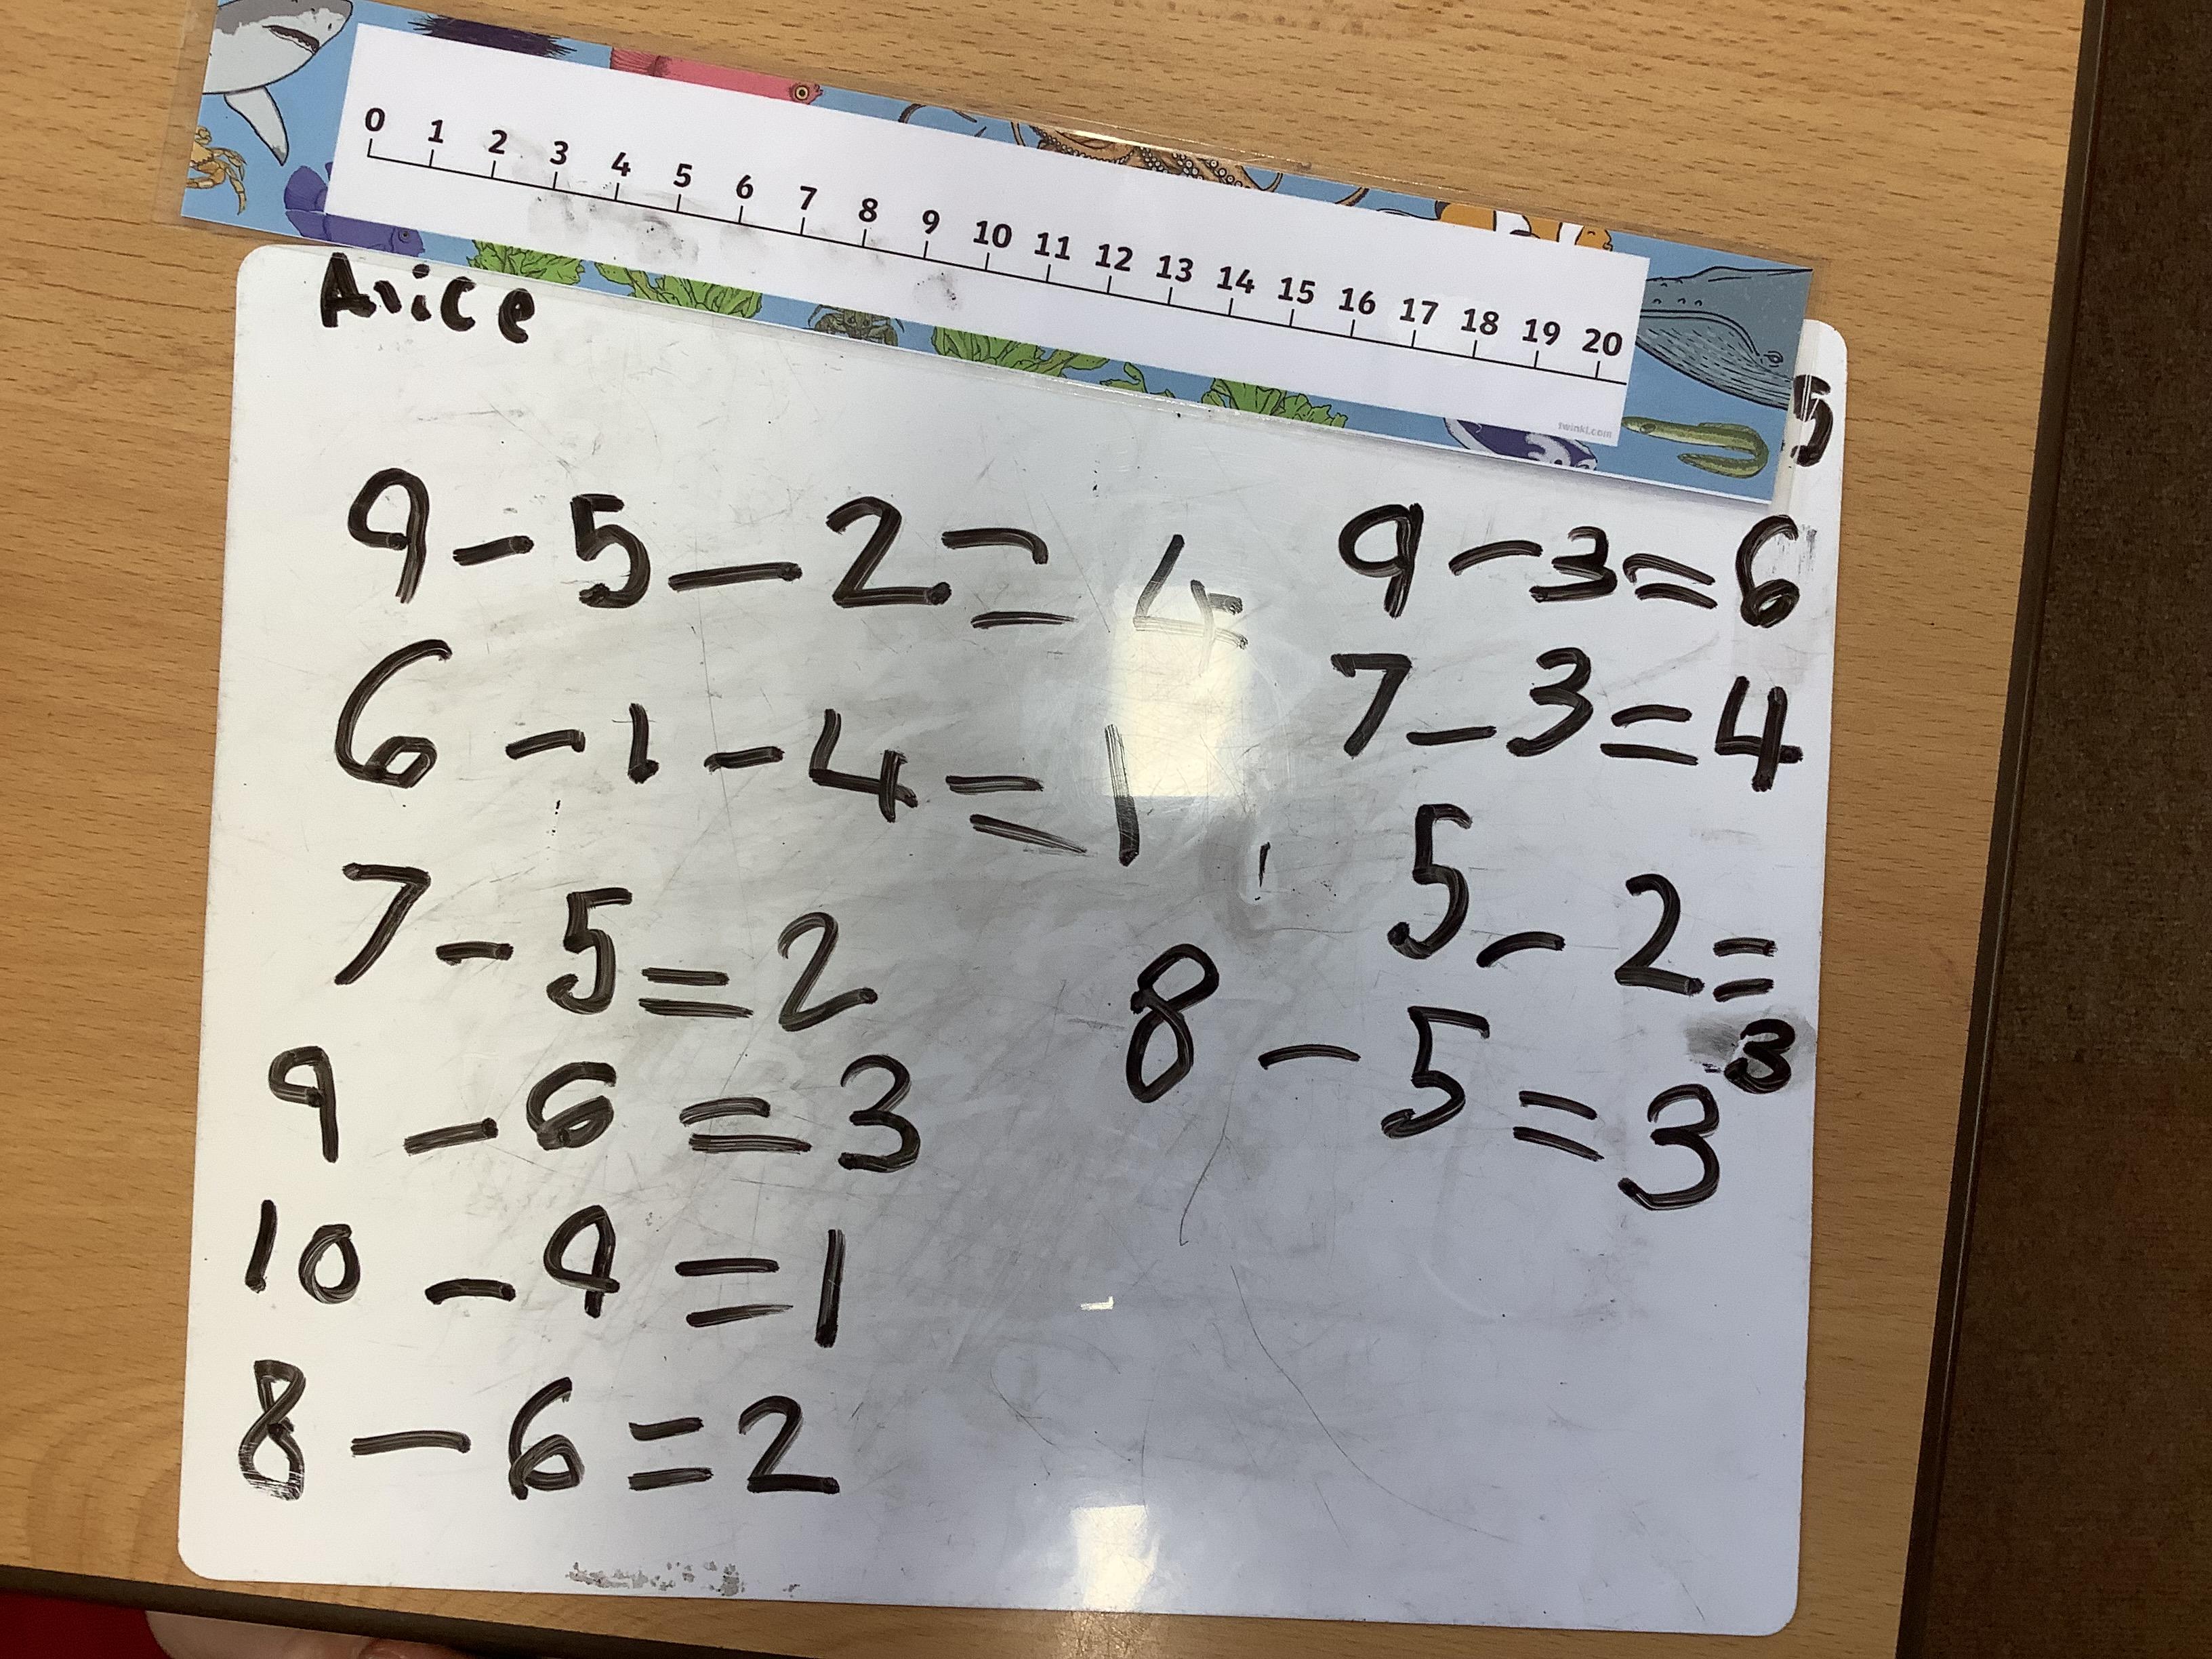 0 1 2 3 4 5 6 7 8 9 10 11 12 13 14 15 16 17 18 19 20
twinkl.com
Alice
5
9-5-2=4
6-1-4=1
7-5=2
9-6=3
10-9=1
8-6=2
9-3=6
7-3=4
5-2=
3
8-5=3